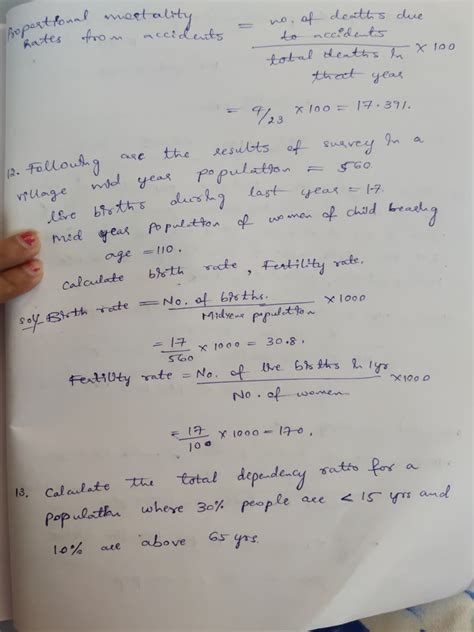 Proportional mortality = no. of deaths due
Rates from accidents to accidents × 100
total deaths in
that year
= 4/23 × 100 = 17.39%.
12. Following are the results of survey in a
village mid year population = 560
live births during last year = 17.
Mid year population of women of child bearing
age = 110.
Calculate birth rate, Fertility rate.
Sol/ Birth rate = No. of births. × 1000
Midyear population
= 17/560 × 1000 = 30.8.
Fertility rate = No. of live births in 1yr × 1000
No. of women
= 17/100 × 1000 = 170.
13. Calculate the total dependency ratio for a
population where 30% people are < 15 yrs and
10% are above 65 yrs.